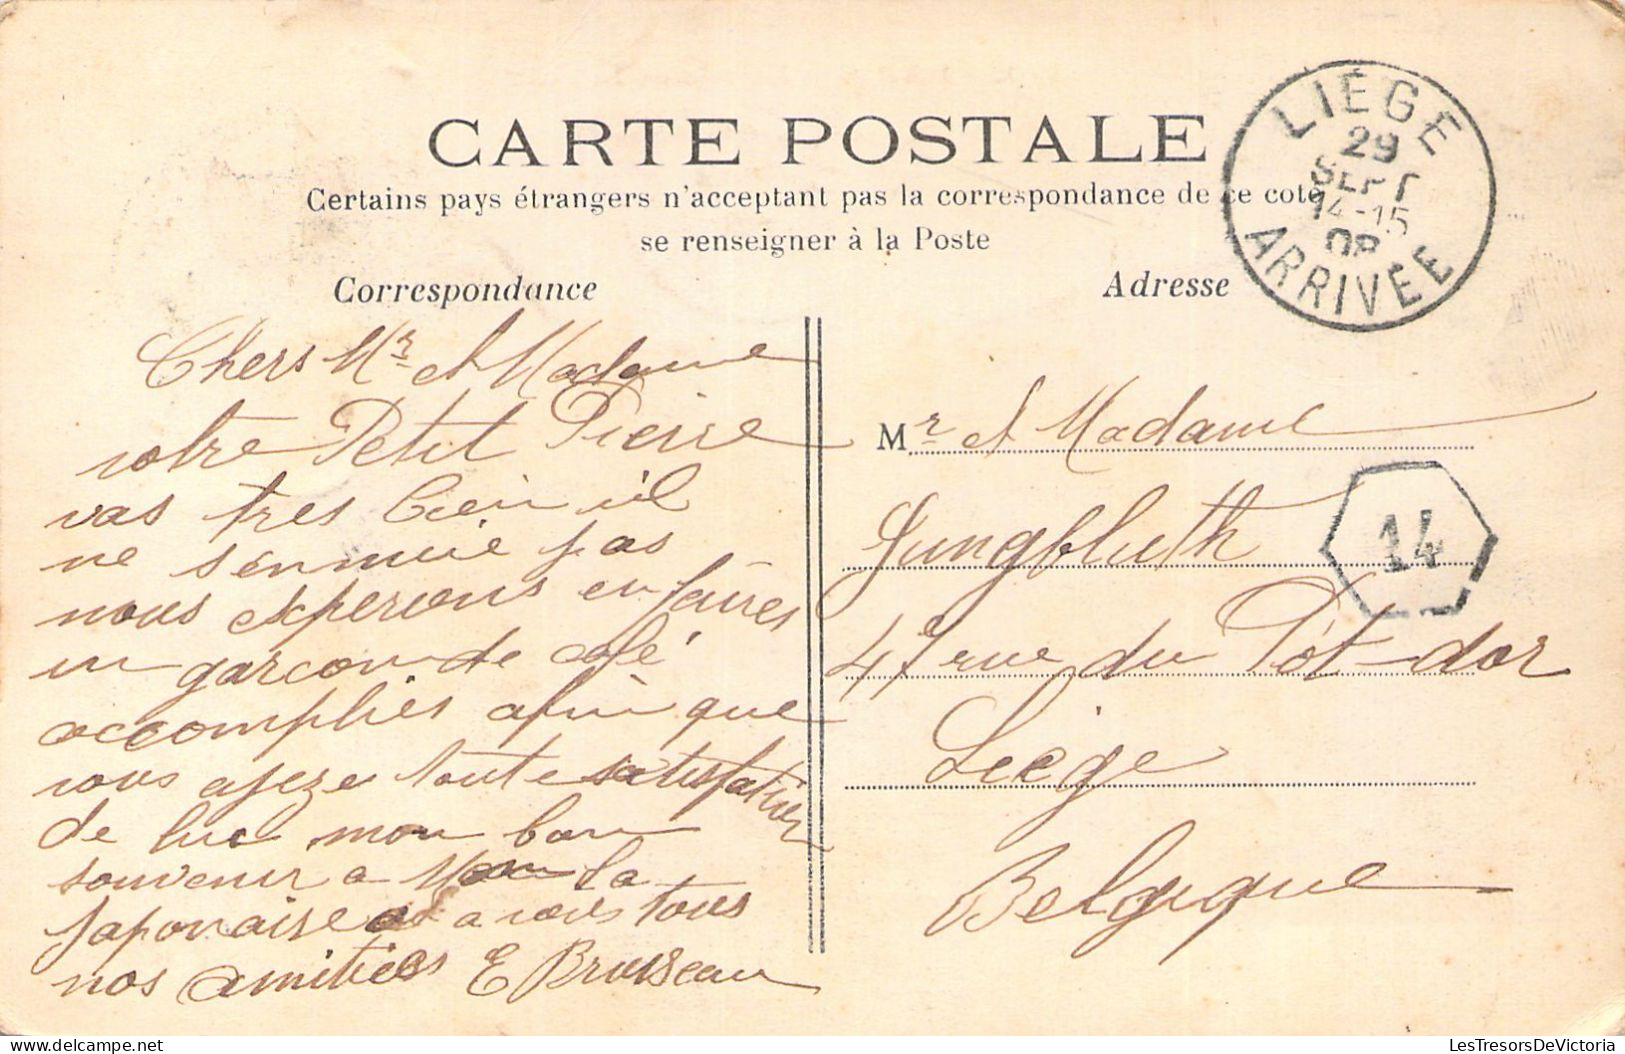 CARTE POSTALE
Certains pays étrangers n'acceptent pas la correspondance de ce coté
se renseigner à la Poste
Correspondance
Adresse
LIÉGE
29
SEPT
14-15
08
ARRIVÉE
Chers Mr et Madame
votre Petit Pierre
vas tres bien il
ne s'énnuie pas
nous experons en faires
un garcon de café
accomplies afin que
vous ajeze toute satisfation
de lui mon bon
souvenir a la
japonaise a vous tous
nos amitiées E Brusseau
Mr et Madame
Jungbluth
14
41 rue du Pôt-dor
Liège
Belgique
LesTresorsDeVictoria